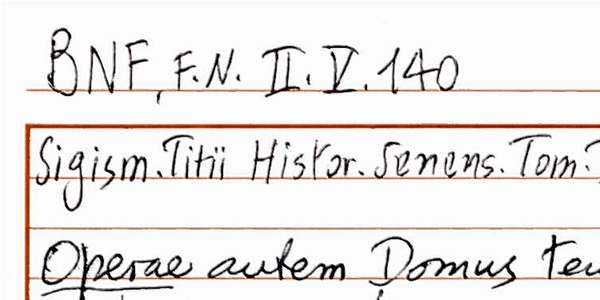 BNF, F.N. II. V. 140
Sigism. Titii Histor. Senens. Tom.
Operae autem Domus